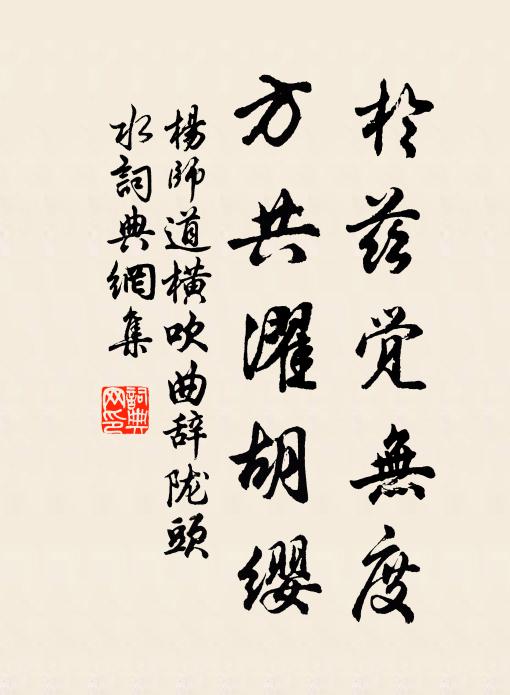 於兹覺無度
方共濯胡纓
楊師道橫吹曲辞陇頭
水詞典網集
詞典
网印